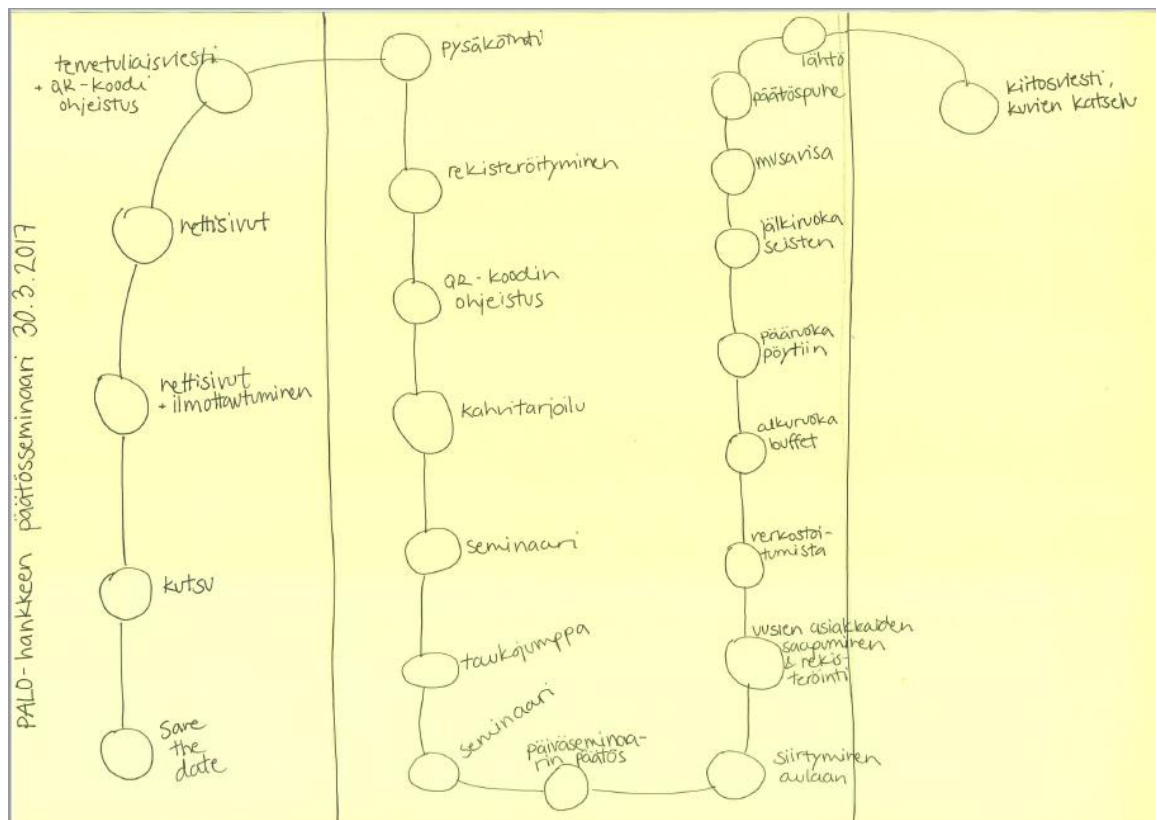 PALO-hankkeen päätösseminaari 30.3.2017
Save
the
date
kutsu
nettisivut
+ ilmottautuminen
nettisivut
tervetuliaisviesti
+ QR-koodi
ohjeistus
pysäköinti
rekisteröityminen
QR-koodin
ohjeistus
kahvitarjoilu
seminaari
taukojumppa
seminaari
päiväseminaa-
rin päätös
siirtyminen
aulaan
uusien asiakkaiden
saapuminen
& rekis-
teröinti
verkostoi-
tumista
alkuruoka
buffet
pääruoka
pöytiin
jälkiruoka
seisten
musavisa
päätöspuhe
lähtö
kiitosviesti,
kuvien katselu